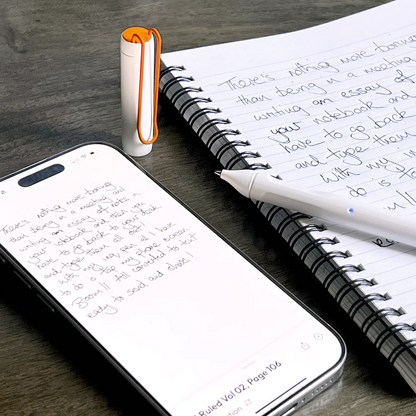 There's nothing more boring
than being in a meeting
writing an essay of
your notebook and
have to go back
and type them
with my
do is
There's nothing more boring
than being in a meeting and
writing an essay of notes in
your notebook and then
have to go back to your desk
and type them all up!
with my pen all I have
to do is my phone screen
Boom!! All converted to text
ready to send and share!
Ruled Vol 02, Page 106